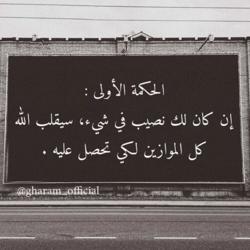 الحكمة الأولى :
إن كان لك نصيب في شيء، سيقلب الله
كل الموازين لكي تحصل عليه .
@gharam_official